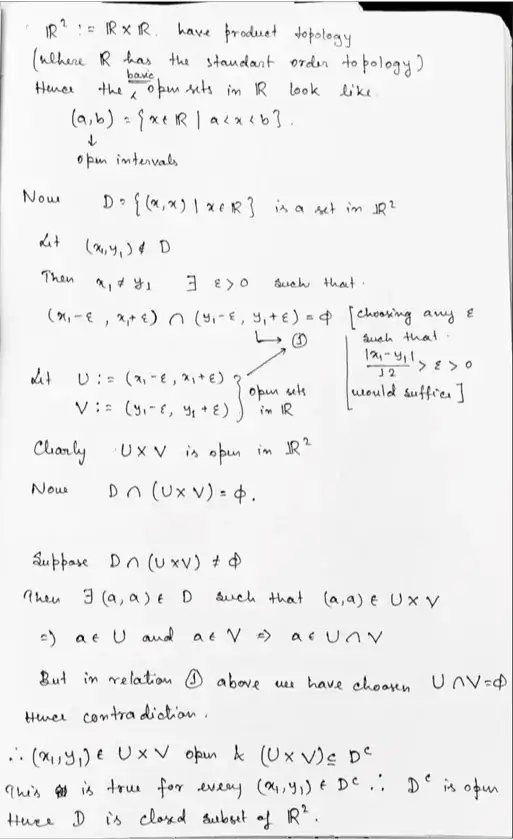 ℝ² := ℝ × ℝ. have product topology
(where ℝ has the standard order topology)
Hence the basic open sets in ℝ look like.
(a,b) = {x ∈ ℝ | a < x < b}.
↓
open intervals
Now D = {(x,x) | x ∈ ℝ} is a set in ℝ²
Let (x₁,y₁) ∉ D
Then x₁ ≠ y₁ ∃ ε > 0 such that.
(x₁-ε, x₁+ε) ∩ (y₁-ε, y₁+ε) = ϕ [choosing any ε
↳ ① such that.
|x₁-y₁|/12 > ε > 0
would suffice]
Let U := (x₁-ε, x₁+ε)
V := (y₁-ε, y₁+ε) } open sets in ℝ
Clearly U × V is open in ℝ²
Now D ∩ (U × V) = ϕ.
Suppose D ∩ (U × V) ≠ ϕ
Then ∃ (a,a) ∈ D such that (a,a) ∈ U × V
=) a ∈ U and a ∈ V => a ∈ U ∩ V
But in relation ① above we have choosen U ∩ V = ϕ
Hence contradiction.
∴ (x₁,y₁) ∈ U × V open & (U × V) ⊆ Dᶜ
This is true for every (x₁,y₁) ∈ Dᶜ ∴ Dᶜ is open
Hence D is closed subset of ℝ².